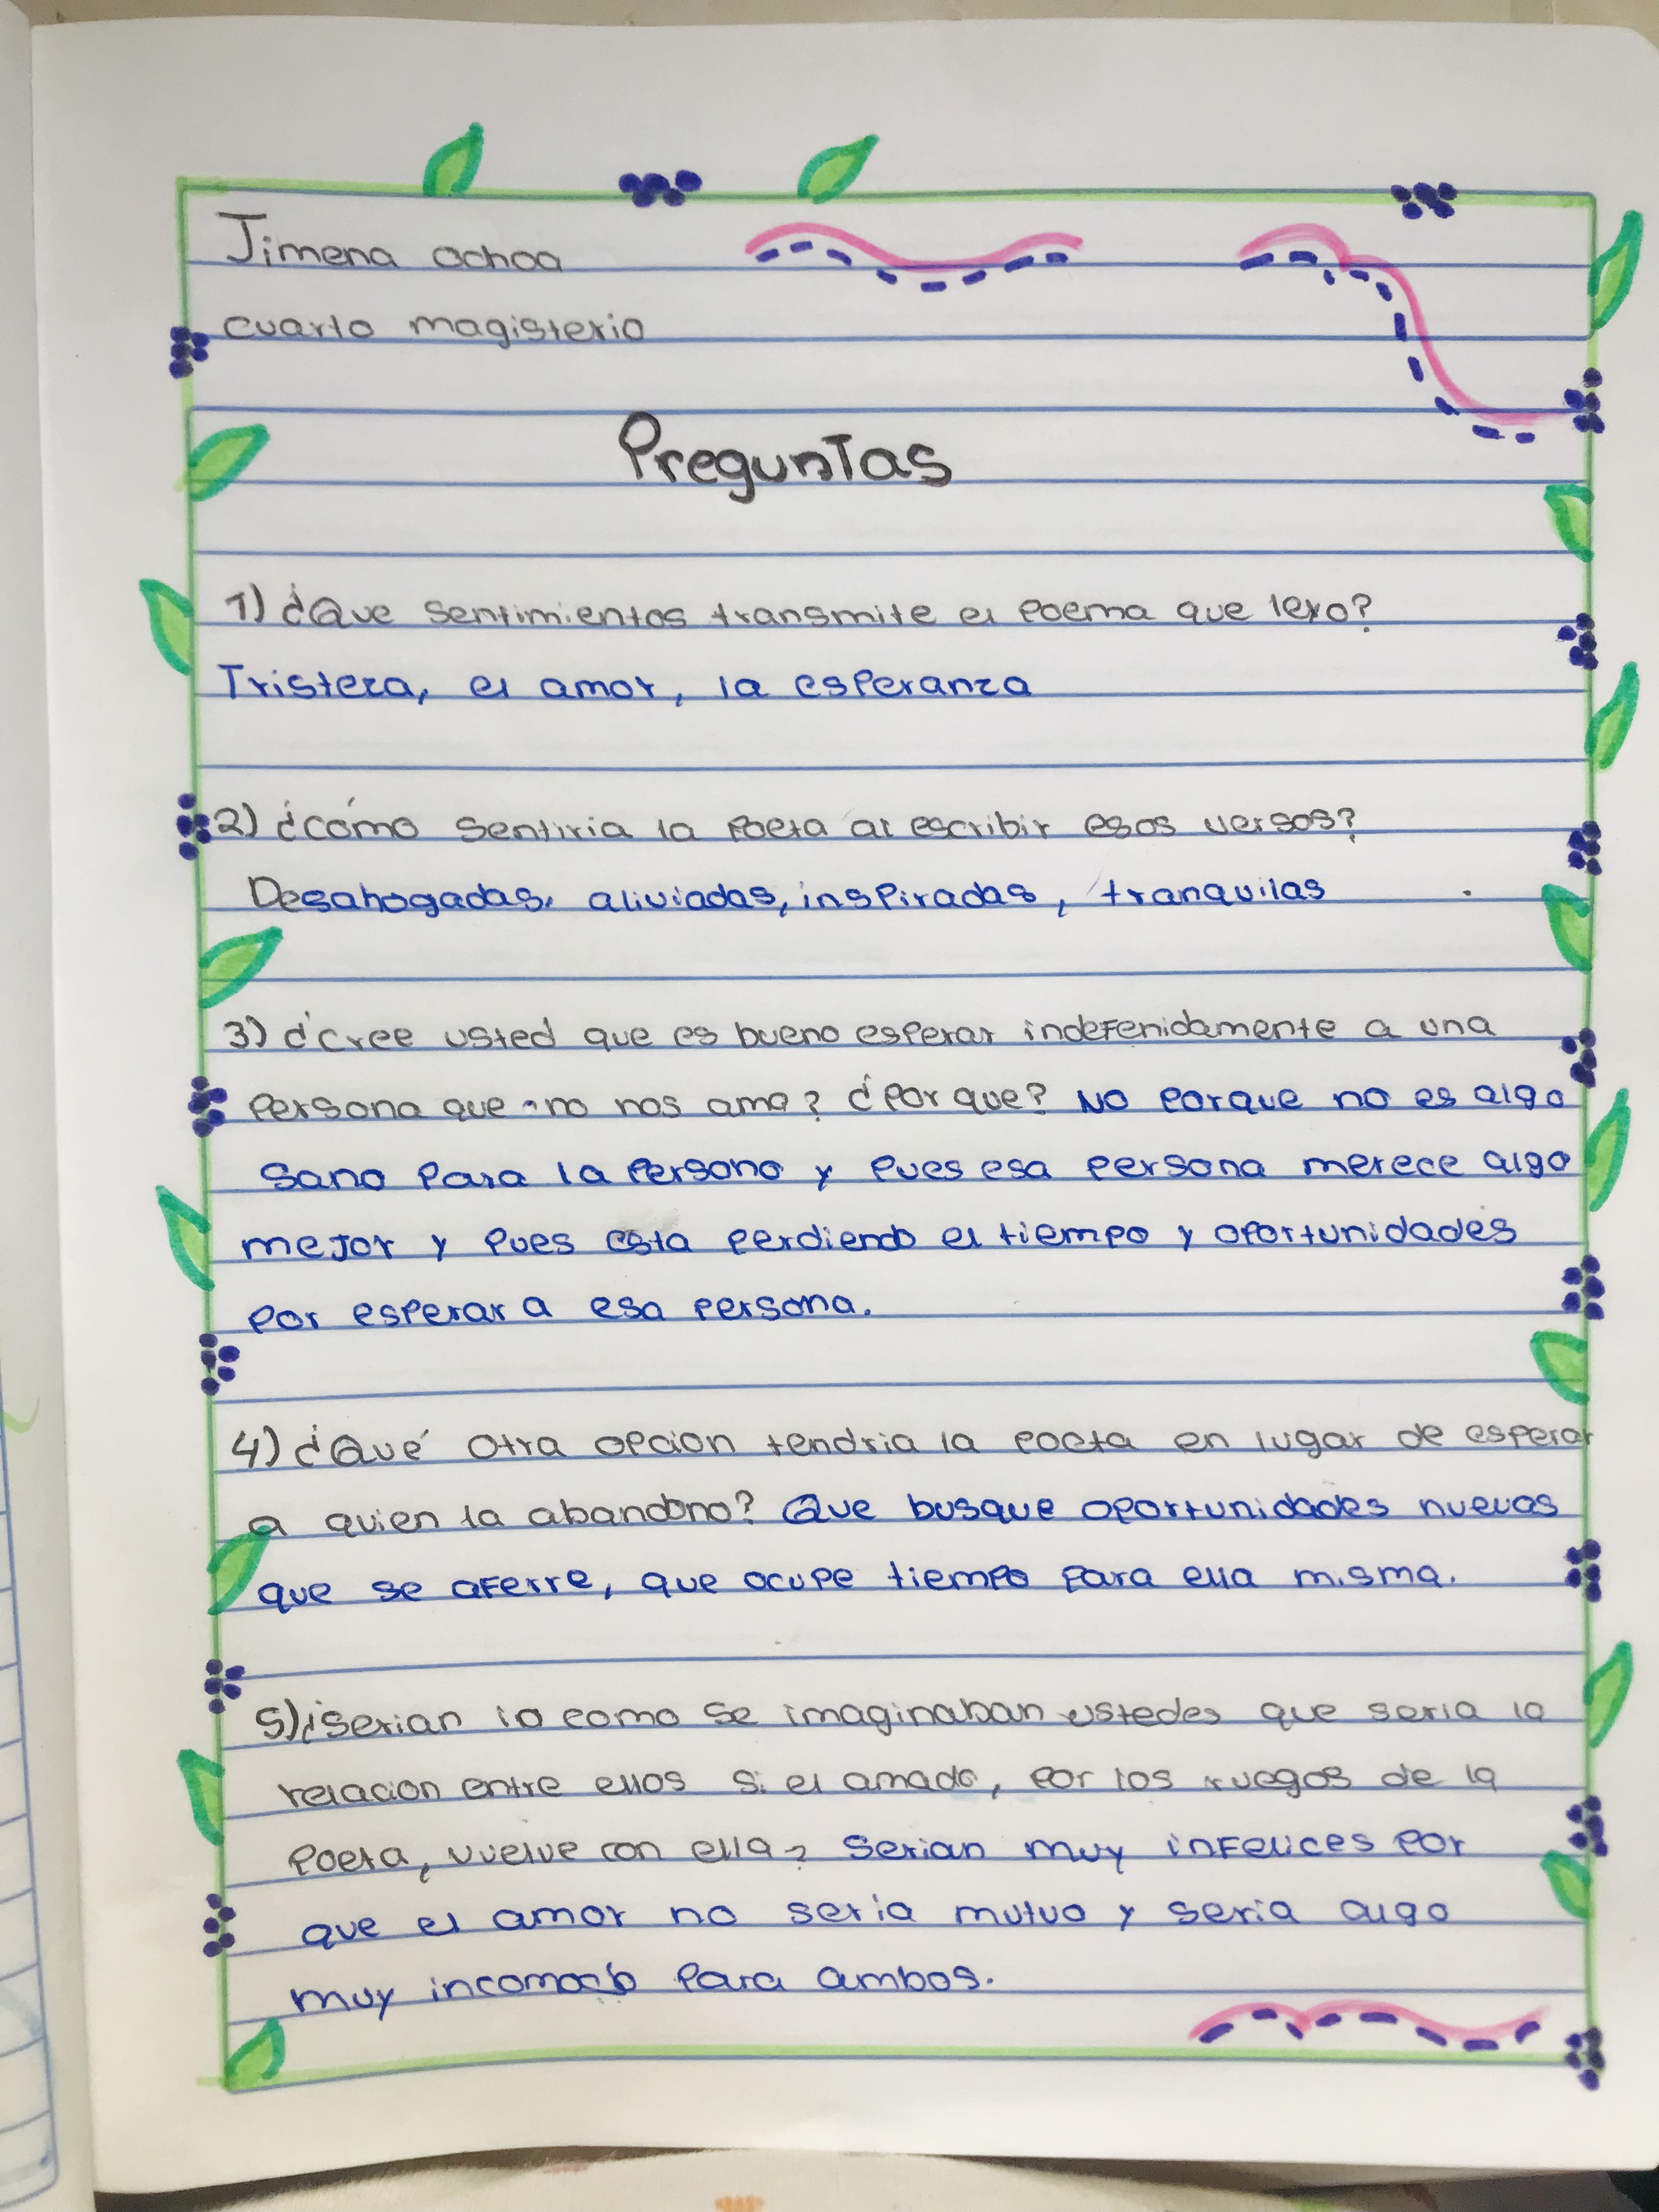 Jimena ochoa
cuarto magisterio
Preguntas
1) ¿Que sentimientos transmite el poema que leyo?
Tristeza, el amor, la esperanza
2) ¿cómo sentiria la poeta al escribir esos versos?
Desahogadas, aliviadas, inspiradas, tranquilas
3) ¿cree usted que es bueno esperar indefenidamente a una
persona que no nos ama? ¿Por que? No porque no es algo
sano para la persona y pues esa persona merece algo
mejor y pues esta perdiendo el tiempo y oportunidades
por esperar a esa persona.
4) ¿Qué otra opcion tendria la poeta en lugar de esperar
a quien la abandono? Que busque oportunidades nuevas
que se aferre, que ocupe tiempo para ella misma.
5) ¿serian la como se imaginaban ustedes que seria la
relacion entre ellos si el amado, por los ruegos de la
poeta, vuelve con ella? serian muy infelices por
que el amor no seria mutuo y seria algo
muy incomodo para ambos.